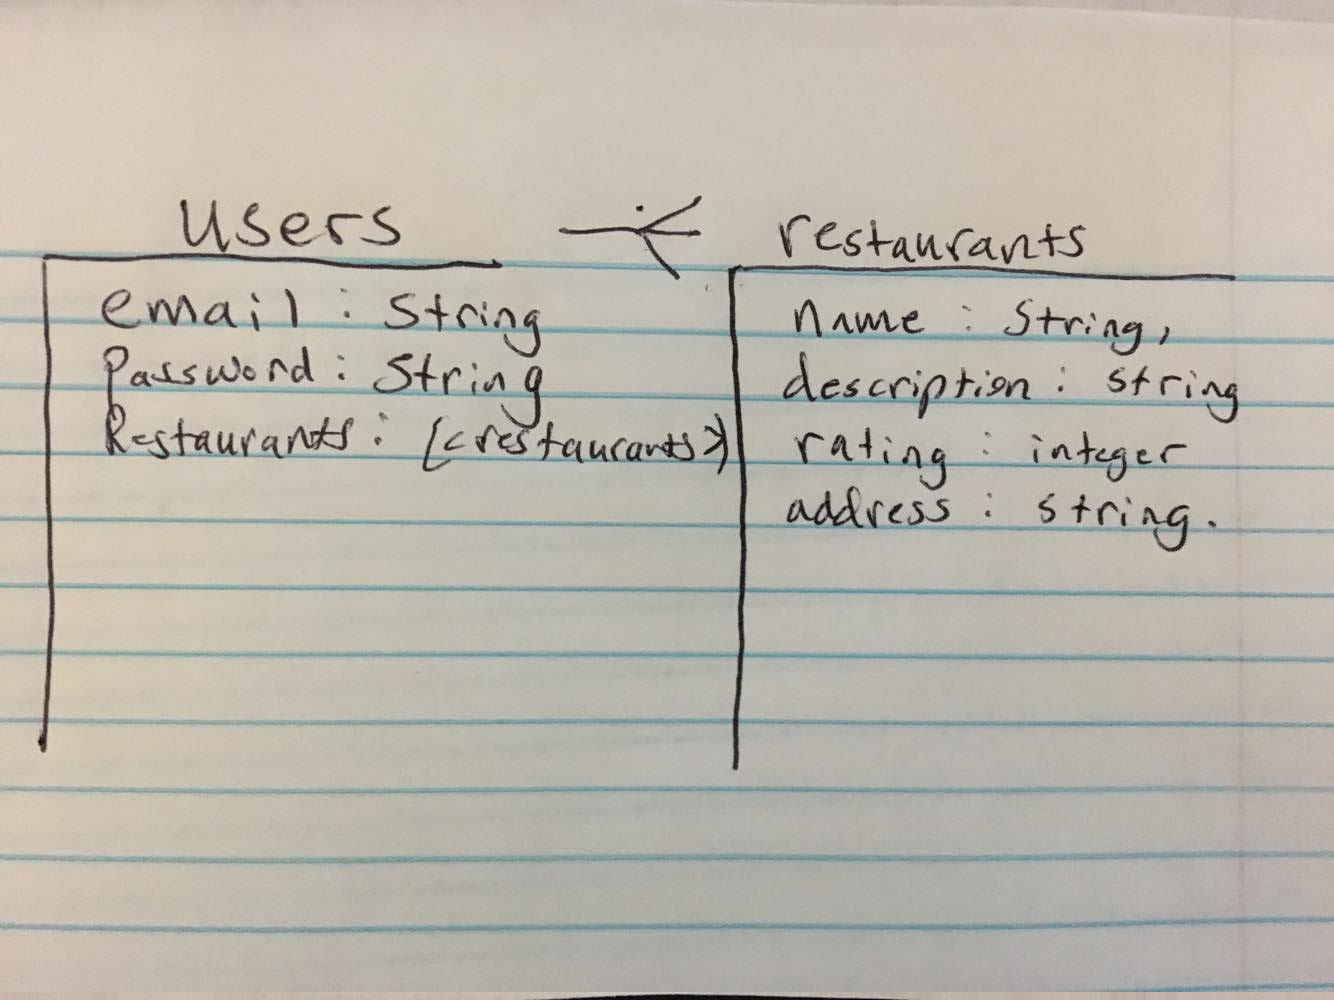 users
email : String
Password : String
Restaurants : [<restaurants>]
restaurants
name : String,
description : string
rating : integer
address : string.